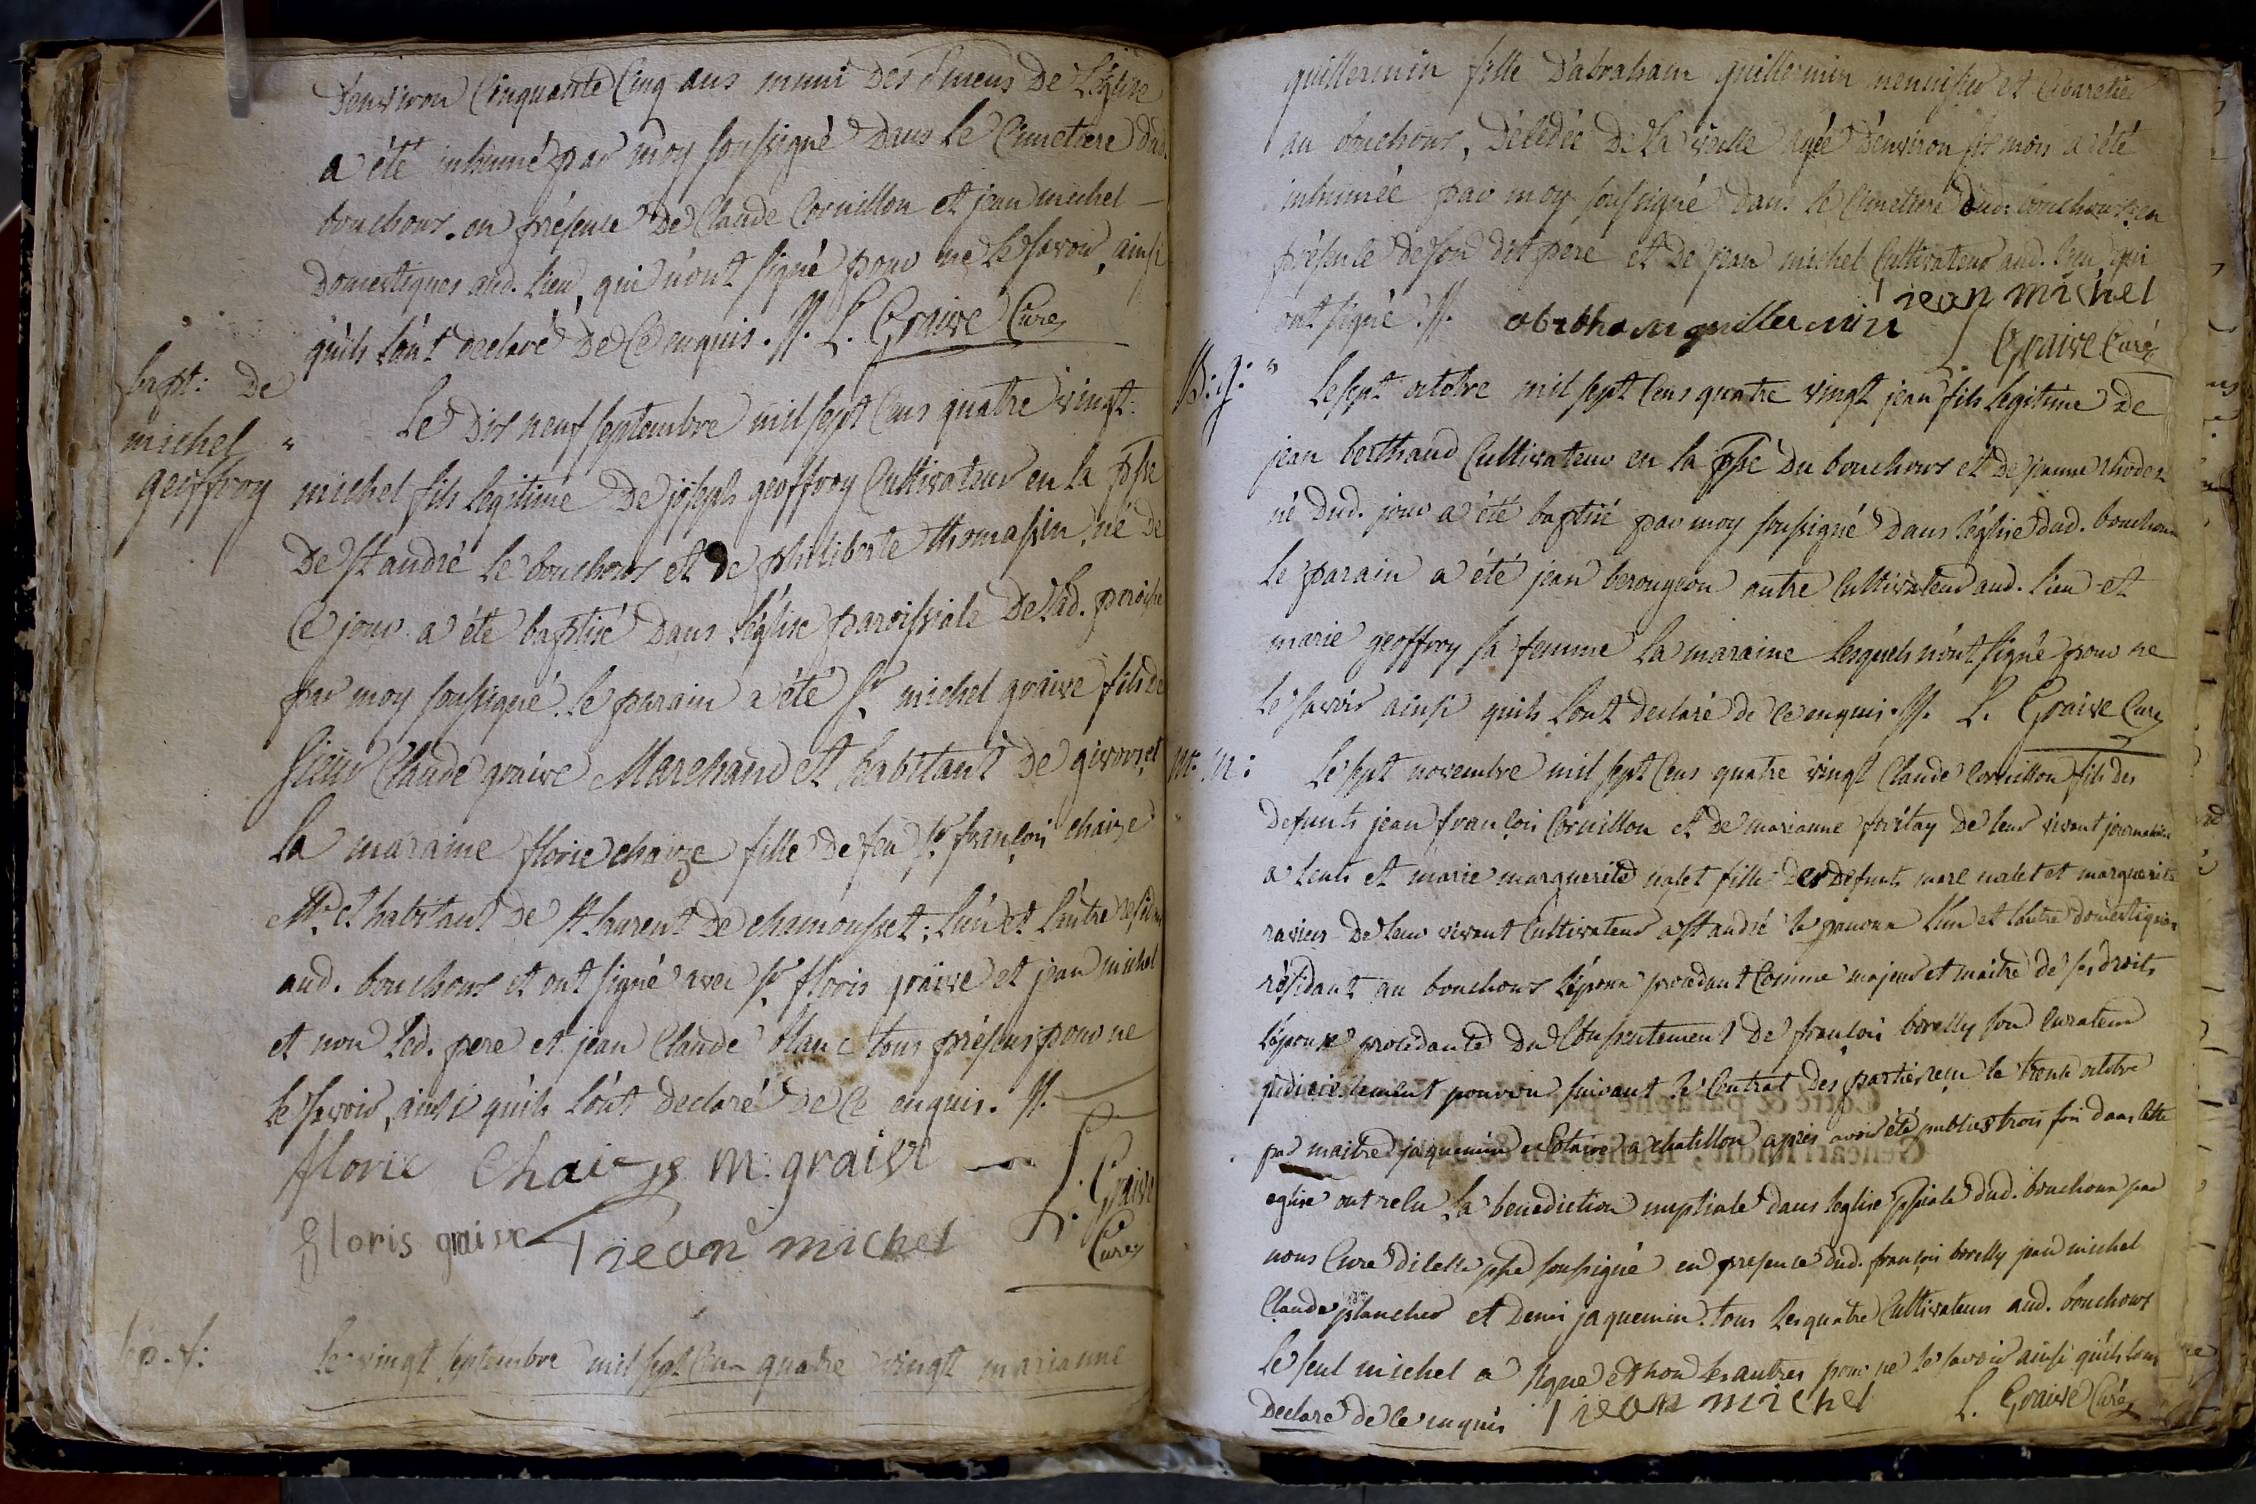 D'environ Cinquante Cinq ans muni des s^mens De L'église
a été inhumé par moy soussigné Dans Le Cimetiere dud.
bouchous. en présence De Claude Cornillon et jean michel
Domestiques aud. lieu, qui n'ont signé pour ne Le savoir, ainsi
qu'ils l'ont declaré De Ce enquis. //. L. Graive Curé
bapt: de
michel
geoffroy
Le Dix neuf septembre mil sept Cens quatre vingt
michel fils legitime De joseph geoffroy Cultivateur en la psse
De st andré Le bouchous et de philiberte thomassin, né de
Ce jour a été baptisé Dans l'église paroissiale De lad. paroisse
par moy soussigné. Le parain a été sr. michel graive fils de
sieur Claude graive Marchand et habitant De givors, et
La maraine florie chaize fille De feu sr. françois chaize
Md. et habitant De st laurent De chamousset; l'un et l'autre
aud. bouchous et ont signé avec sr. floris graive et jean michel
et non led. pere et jean Claude blanc tous présens pour ne
le savoir, ainsi qu'ils l'ont Declaré De Ce enquis. //.
florie Chaize m. graive L. Graive
floris graive jean michel Curé
Le vingt septembre mil sept Cens quatre vingt marianne
guillermin fille D'abraham guillermin menuisier et Cabaretier
au bouchous, Décédée De la veille agée d'environ six mois a été
inhumée par moy soussigné Dans le Cimetiere Dud. bouchous en
présence de son dit père et De jean michel Cultivateur aud. lieu, qui
ont signé. //. abrbham guillermin jean michel
L. Graive Curé
B. g: Le sept octobre mil sept Cens quatre vingt jean fils legitime de
jean berthaud Cultivateur en la psse Du bouchous et De jeanne
né Dud. jour a été baptisé par moy soussigné Dans l'église dud. bouchous
Le parain a été jean berougeon autre Cultivateur aud. lieu et
marie geoffroy sa femme La maraine Lesquels n'ont signé pour ne
Le savoir ainsi qu'ils L'ont declaré de Ce enquis. //. L. Graive Curé
Le sept novembre mil sept Cens quatre vingt Claude Cornillon fils des
Defunts jean françois Cornillon et De marianne De leur vivant
et marie marguerite nalet fille Des Defunts marc nalet et marguerite
De leur vivant Cultivateur a st andré l'un et l'autre domestiques
résidant au bouchous L'époux procedant Comme majeur et maitre De ses droits
L'épouse procedante Du Consentement De françois borelly son Curateur
judiciellement pourvu suivant le Contrat des parties reçu le trente octobre
par maitre jaquemin Notaire a chatillon après avoir été publies trois fois dans Cette
eglise ont reçu La benediction nuptiale dans leglise pssiale dud. bouchoux par
nous Curé Dicelle psse soussigné en presence dud. françois borelly jean michel
Claude plancher et Denis jaquemin tous Les quatre Cultivateurs aud. bouchous
Le seul michel a signé et non les autres pour ne le savoir ainsi qu'ils l'ont
Declaré de Ce enquis jean michel L. Graive Curé